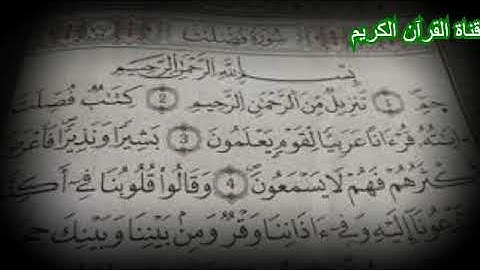 قناة القرآن الكريم
سُورَةُ فُصِّلَتْ
بِسْمِ اللَّهِ الرَّحْمَٰنِ الرَّحِيمِ
حمٓ 1 تَنزِيلٌ مِّنَ ٱلرَّحْمَٰنِ ٱلرَّحِيمِ 2 كِتَٰبٌ فُصِّلَتْ
ءَايَٰتُهُۥ قُرْءَانًا عَرَبِيًّا لِّقَوْمٍ يَعْلَمُونَ 3 بَشِيرًا وَنَذِيرًا فَأَعْرَضَ
أَكْثَرُهُمْ فَهُمْ لَا يَسْمَعُونَ 4 وَقَالُوا۟ قُلُوبُنَا فِىٓ أَكِنَّةٍ
تَدْعُونَآ إِلَيْهِ وَفِىٓ ءَاذَانِنَا وَقْرٌ وَمِنۢ بَيْنِنَا وَبَيْنِكَ